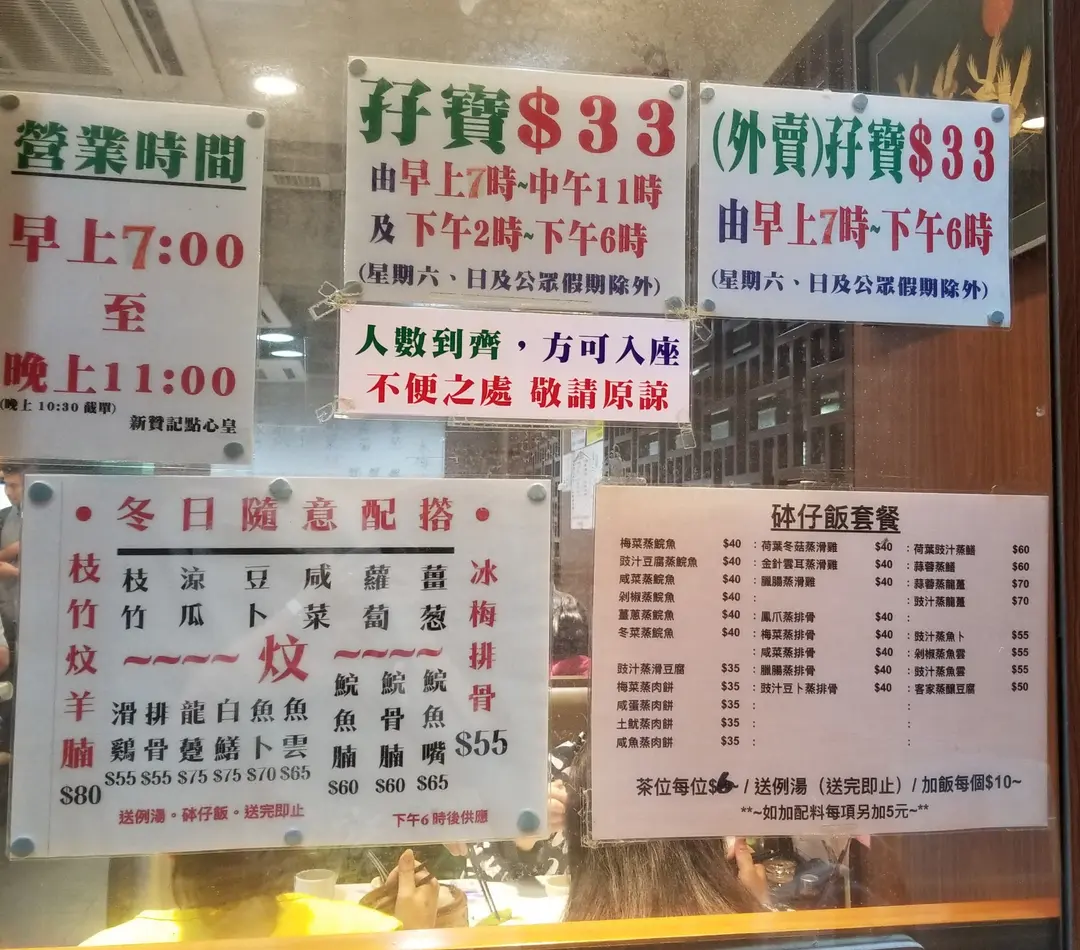 營業時間
早上7:00
至
晚上11:00
(晚上 10:30 截單)
新贊記點心皇
孖寶$33
由早上7時~中午11時
及 下午2時~下午6時
(星期六、日及公眾假期除外)
(外賣)孖寶$33
由早上7時~下午6時
(星期六、日及公眾假期除外)
人數到齊,方可入座
不便之處 敬請原諒
• 冬日隨意配搭 •
枝竹炆羊腩
$80
枝竹 涼瓜 豆卜 咸菜 蘿蔔 薑葱
~~~~炆~~~~
滑鷄 $55
排骨 $55
龍躉 $75
白鱔 $75
魚卜 $70
魚雲 $65
鯇魚腩 $60
鯇骨腩 $60
鯇魚嘴 $65
冰梅排骨
$55
送例湯。砵仔飯。送完即止
下午6時後供應
砵仔飯套餐
梅菜蒸鯇魚 $40 : 荷葉冬菇蒸滑雞 $40 : 荷葉豉汁蒸鱔 $60
豉汁豆腐蒸鯇魚 $40 : 金針雲耳蒸滑雞 $40 : 蒜蓉蒸鱔 $60
咸菜蒸鯇魚 $40 : 臘腸蒸滑雞 $40 : 蒜蓉蒸龍躉 $70
剁椒蒸鯇魚 $40 : : 豉汁蒸龍躉 $70
薑蔥蒸鯇魚 $40 : 鳳爪蒸排骨 $40 :
冬菜蒸鯇魚 $40 : 梅菜蒸排骨 $40 : 豉汁蒸魚卜 $55
: 咸菜蒸排骨 $40 : 剁椒蒸魚雲 $55
豉汁蒸滑豆腐 $35 : 臘腸蒸排骨 $40 : 豉汁蒸魚雲 $55
梅菜蒸肉餅 $35 : 豉汁豆卜蒸排骨 $40 : 客家蒸釀豆腐 $50
咸蛋蒸肉餅 $35 : :
土魷蒸肉餅 $35 : :
咸魚蒸肉餅 $35 : :
茶位每位$6~ / 送例湯 (送完即止) / 加飯每個$10~
**~如加配料每項另加5元~**